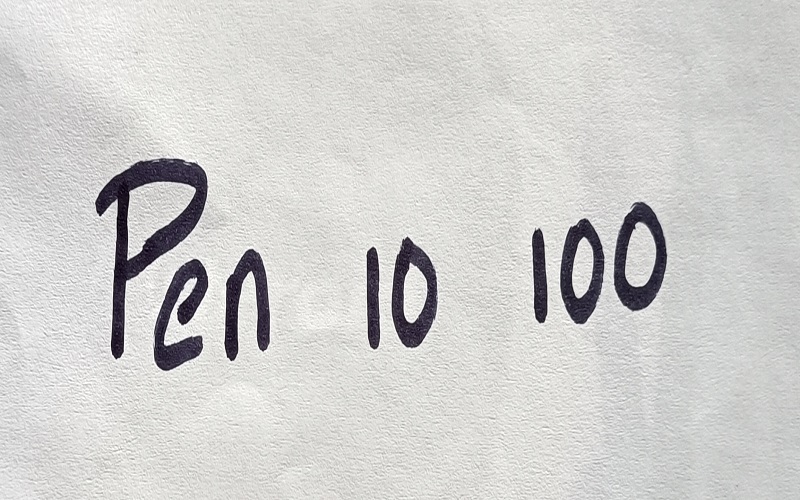 Pen 10 100